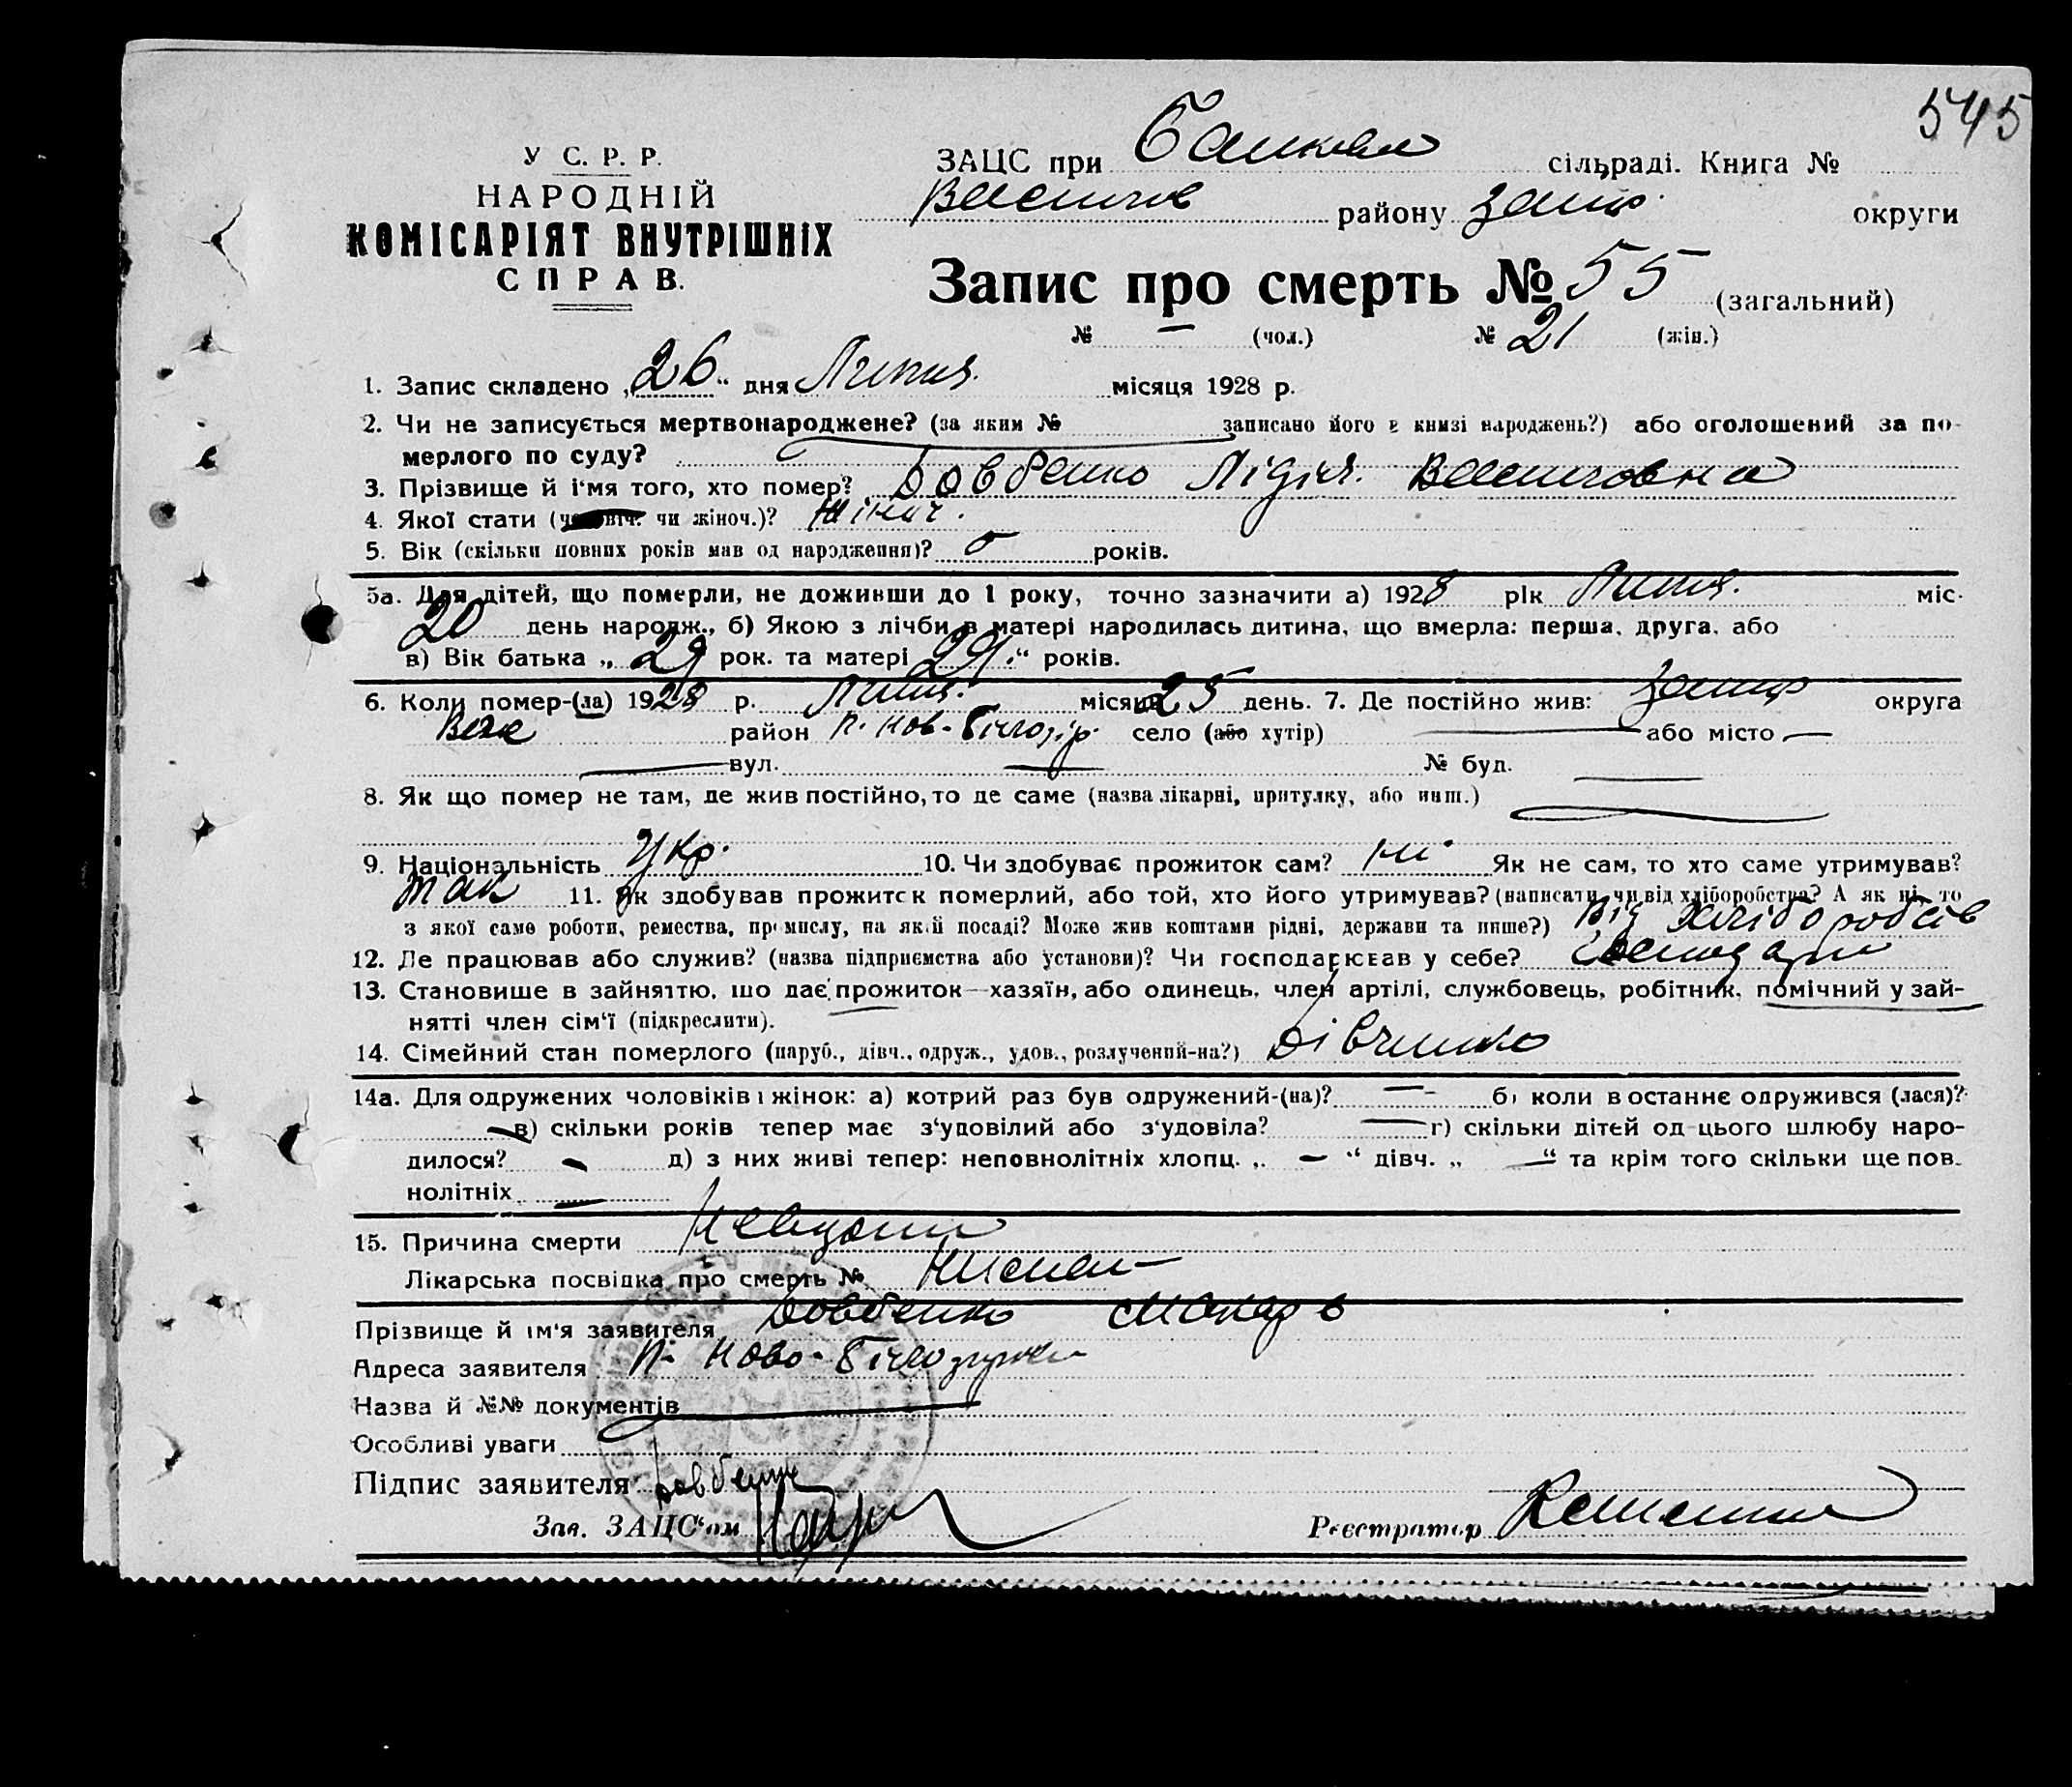 545
У С. Р. Р.
НАРОДНІЙ
КОМІСАРІЯТ ВНУТРІШНІХ
СПРАВ.
ЗАЦС при сільраді. Книга №
району Запор. округи
Запис про смерть № 55 (загальний)
№ — (чол.) № 21 (жін.)
1. Запис складено „26“ дня Липня. місяця 1928 р.
2. Чи не записується мертвонароджене? (за яким № записано його в книзі народжень?) або оголошений за по-
мерлого по суду?
3. Прізвище й і'мя того, хто помер? Довбенко Лідія.
4. Якої стати (чоловіч. чи жіноч.)? Жіноч.
5. Вік (скільки повних років мав од народження)? років.
5а. Для дітей, що померли, не доживши до 1 року, точно зазначити а) 1928 рік Липня. міс.
20 день народж., б) Якою з лічби в матері народилась дитина, що вмерла: перша, друга, або
в) Вік батька „29 рок. та матері 29.“ років.
6. Коли помер-(ла) 1928 р. Липня. місяця 25 день. 7. Де постійно жив: Запор округа
район п. Нов-Білозір. село (або хутір) — або місто —
— вул. — № буд. —
8. Як що помер не там, де жив постійно, то де саме (назва лікарні, притулку, або инш.)
9. Національність Укр. 10. Чи здобуває прожиток сам? ні Як не сам, то хто саме утримував?
11. Як здобував прожиток померлий, або той, хто його утримував? (написати, чи від хліборобства? А як ні, то
з якої саме роботи, ремества, промислу, на якій посаді? Може жив коштами рідні, держави та инше?) Від Хліборобств
12. Де працював або служив? (назва підприємства або установи)? Чи господарював у себе?
13. Становище в зайняттю, що дає прожиток—хазяїн, або одинець, член артілі, службовець, робітник, помічний у зай-
нятті член сім'ї (підкреслити).
14. Сімейний стан померлого (паруб., дівч., одруж., удов., розлучений-на?) Дівчинка
14а. Для одружених чоловіків і жінок: а) котрий раз був одружений-(на)? — б) коли востаннє одружився (лася)?
— в) скільки років тепер має з'удовілий або з'удовіла? — г) скільки дітей од цього шлюбу наро-
дилося? — д) з них живі тепер: неповнолітніх хлопц. „ — “ дівч. „ — “ та крім того скільки ще пов-
нолітніх —
15. Причина смерти
Лікарська посвідка про смерть №
Прізвище й ім'я заявителя Довбенко Макар
Адреса заявителя п. Ново-Білозірка
Назва й №№ документів
Особливі уваги
Підпис заявителя Довбенко
Зав. ЗАЦС'ом
Реєстратор